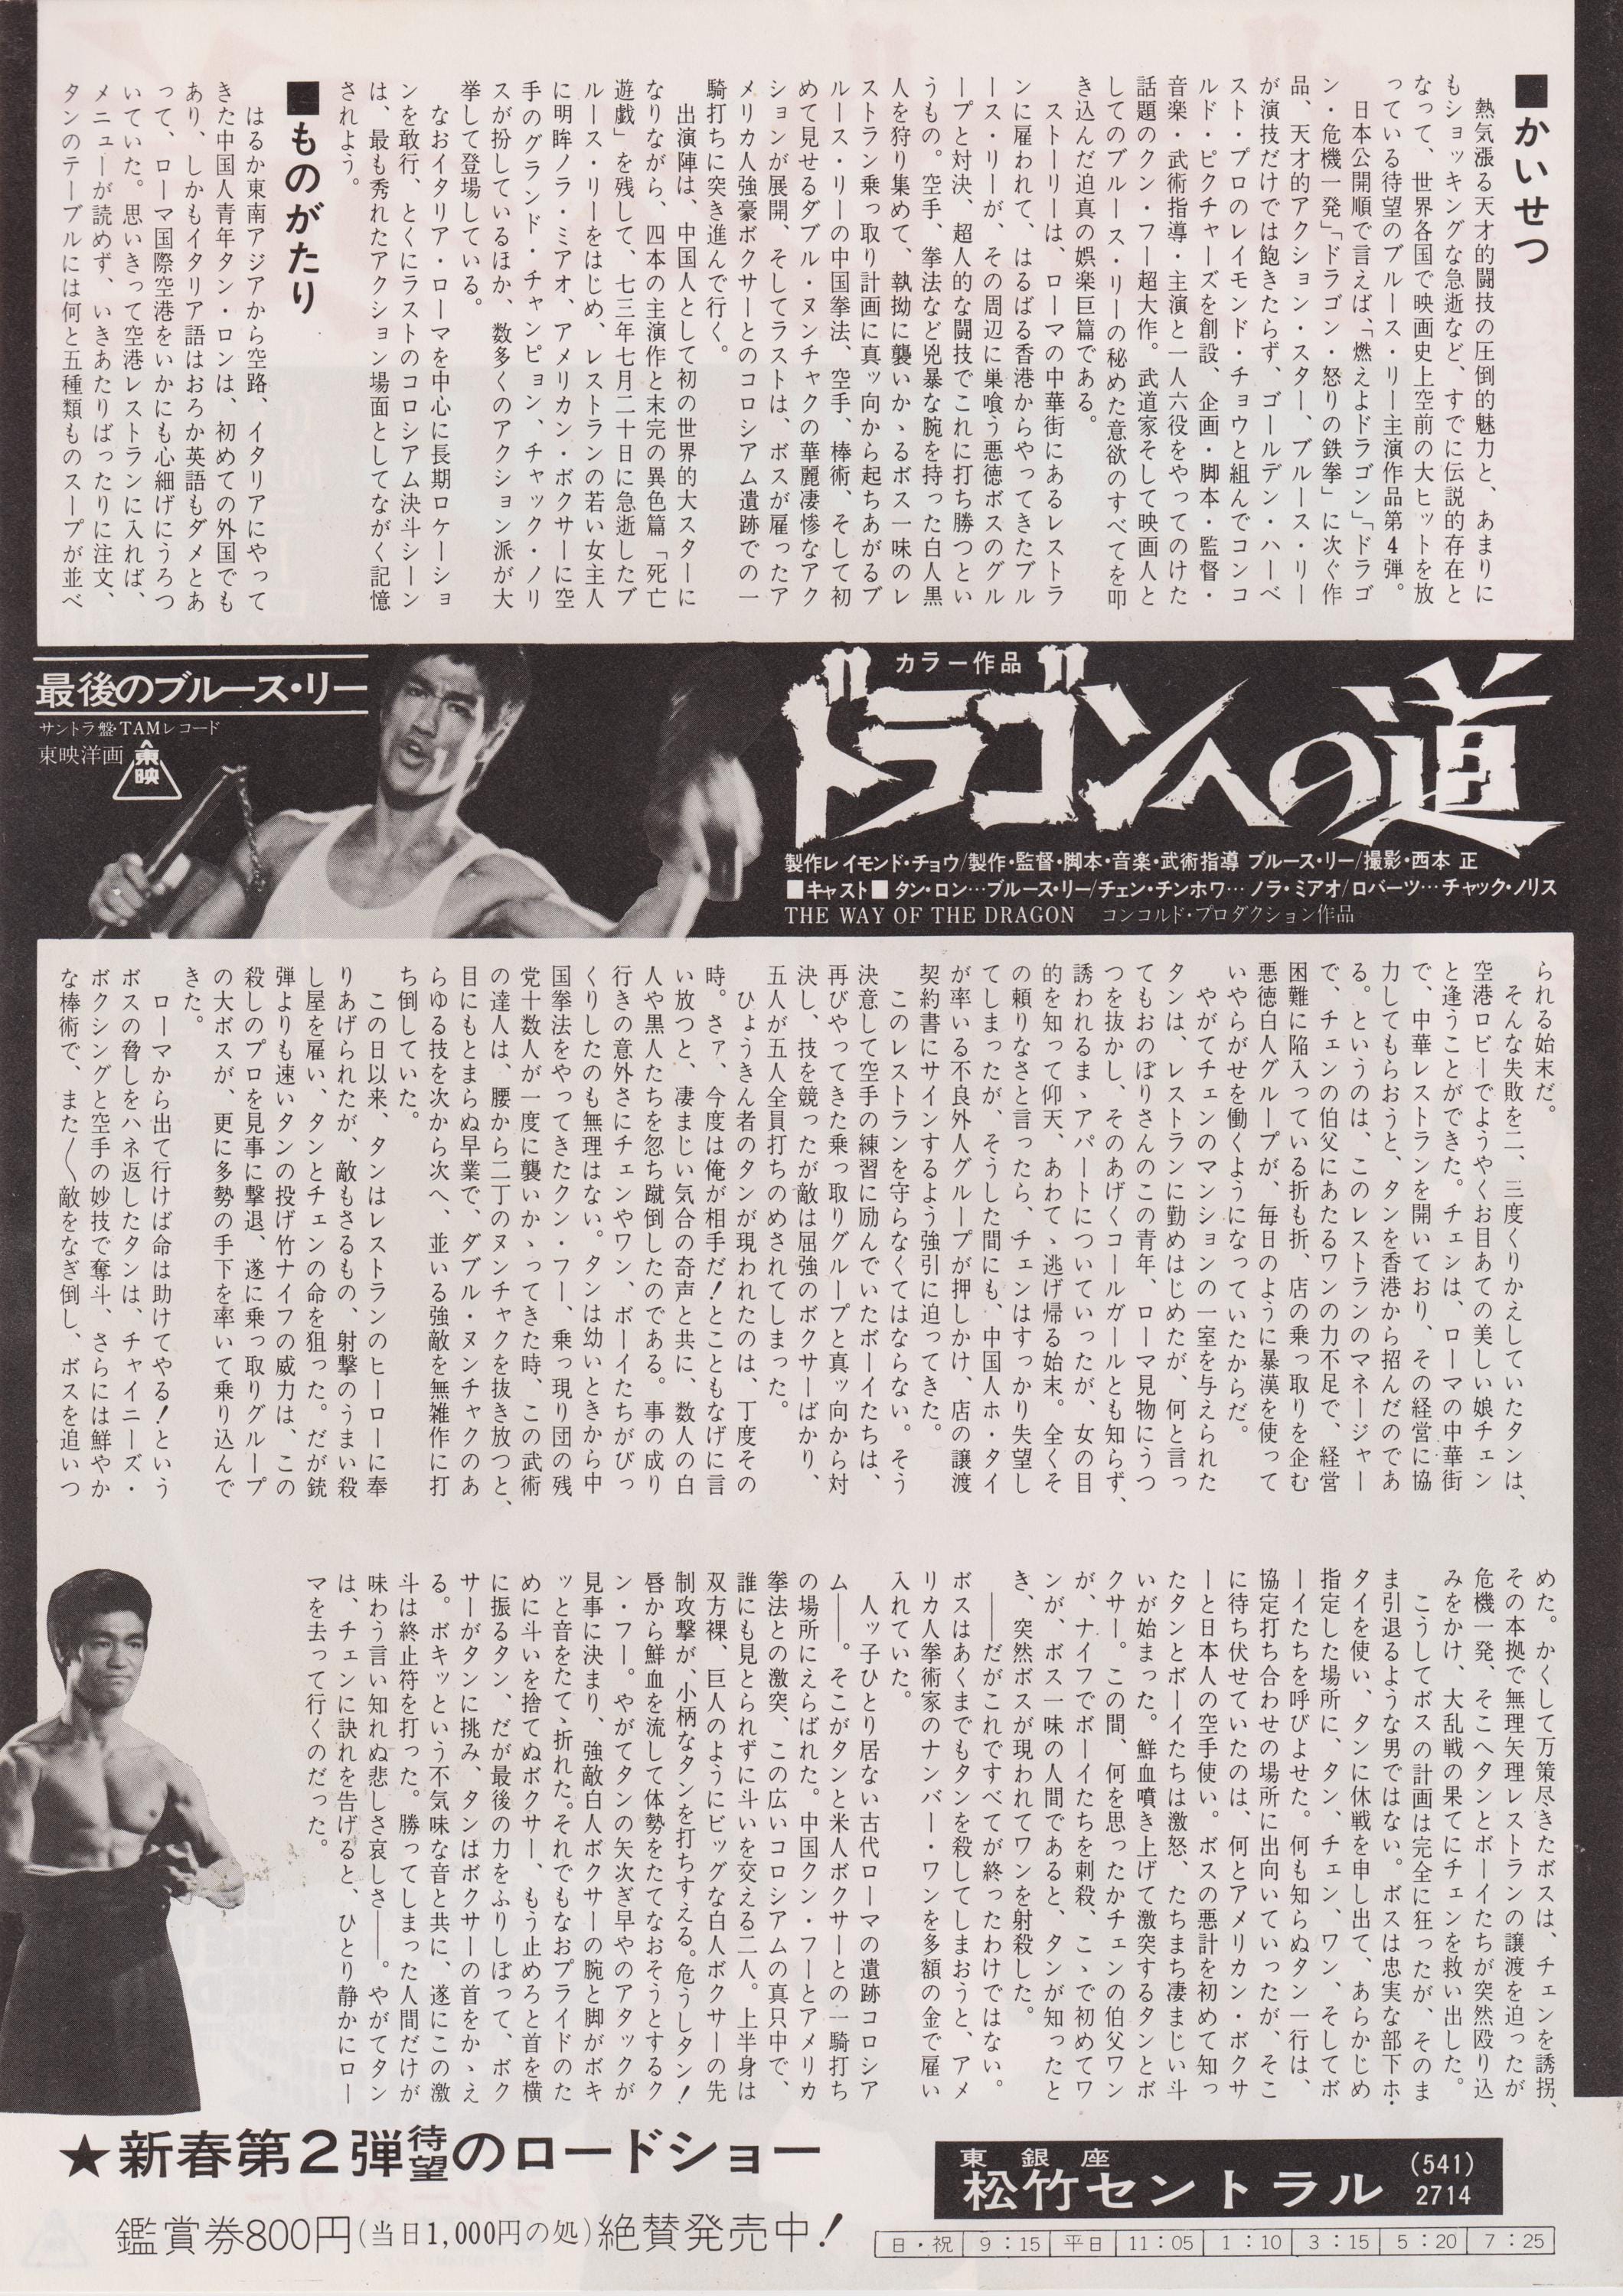 ■かいせつ
熱気漲る天才的闘技の圧倒的魅力と、あまりに
もショッキングな急逝など、すでに伝説的存在と
なって、世界各国で映画史上空前の大ヒットを放
っている待望のブルース・リー主演作品第4弾。
日本公開順で言えば、「燃えよドラゴン」「ドラゴ
ン・危機一発」「ドラゴン・怒りの鉄拳」に次ぐ作
品、天才的アクション・スター、ブルース・リー
が演技だけでは飽きたらず、ゴールデン・ハーベ
スト・プロのレイモンド・チョウと組んでコンコ
ルド・ピクチャーズを創設、企画・脚本・監督・
音楽・武術指導・主演と一人六役をやってのけた
話題のクン・フー超大作。武道家そして映画人と
してのブルース・リーの秘めた意欲のすべてを叩
き込んだ迫真の娯楽巨篇である。
ストーリーは、ローマの中華街にあるレストラ
ンに雇われて、はるばる香港からやってきたブル
ース・リーが、その周辺に巣喰う悪徳ボスのグル
ープと対決、超人的な闘技でこれに打ち勝つとい
うもの。空手、拳法など兇暴な腕を持った白人黒
人を狩り集めて、執拗に襲いかゝるボス一味のレ
ストラン乗っ取り計画に真ッ向から起ちあがるブ
ルース・リーの中国拳法、空手、棒術、そして初
めて見せるダブル・ヌンチャクの華麗凄惨なアク
ションが展開、そしてラストは、ボスが雇ったア
メリカ人強豪ボクサーとのコロシアム遺跡での一
騎打ちに突き進んで行く。
出演陣は、中国人として初の世界的大スターに
なりながら、四本の主演作と末完の異色篇「死亡
遊戯」を残して、七三年七月二十日に急逝したブ
ルース・リーをはじめ、レストランの若い女主人
に明眸ノラ・ミアオ、アメリカン・ボクサーに空
手のグランド・チャンピョン、チャック・ノリ
スが扮しているほか、数多くのアクション派が大
挙して登場している。
なおイタリア・ローマを中心に長期ロケーショ
ンを敢行、とくにラストのコロシアム決斗シーン
は、最も秀れたアクション場面としてながく記憶
されよう。
■ものがたり
はるか東南アジアから空路、イタリアにやって
きた中国人青年タン・ロンは、初めての外国でも
あり、しかもイタリア語はおろか英語もダメとあ
って、ローマ国際空港をいかにも心細げにうろつ
いていた。思いきって空港レストランに入れば、
メニューが読めず、いきあたりばったりに注文、
タンのテーブルには何と五種類ものスープが並べ
最後のブルース・リー
サントラ盤・TAMレコード
東映洋画
東映
カラー作品
ドラゴンへの道
製作レイモンド・チョウ/製作・監督・脚本・音楽・武術指導 ブルース・リー/撮影・西本 正
■キャスト■ タン・ロン…ブルース・リー/チェン・チンホワ…ノラ・ミアオ/ロバーツ…チャック・ノリス
THE WAY OF THE DRAGON コンコルド・プロダクション作品
られる始末だ。
そんな失敗を二、三度くりかえしていたタンは、
空港ロビーでようやくお目あての美しい娘チェン
と逢うことができた。チェンは、ローマの中華街
で、中華レストランを開いており、その経営に協
力してもらおうと、タンを香港から招んだのであ
る。というのは、このレストランのマネージャー
で、チェンの伯父にあたるワンの力不足で、経営
困難に陥入っている折も折、店の乗っ取りを企む
悪徳白人グループが、毎日のように暴漢を使って
いやらがせを働くようになっていたからだ。
やがてチェンのマンションの一室を与えられた
タンは、レストランに勤めはじめたが、何と言っ
てもおのぼりさんのこの青年、ローマ見物にうつ
つを抜かし、そのあげくコールガールとも知らず、
誘われるまゝアパートについていったが、女の目
的を知って仰天、あわてゝ逃げ帰る始末。全くそ
の頼りなさと言ったら、チェンはすっかり失望し
てしまったが、そうした間にも、中国人ホ・タイ
が率いる不良外人グループが押しかけ、店の譲渡
契約書にサインするよう強引に迫ってきた。
このレストランを守らなくてはならない。そう
決意して空手の練習に励んでいたボーイたちは、
再びやってきた乗っ取りグループと真ッ向から対
決し、技を競ったが敵は屈強のボクサーばかり、
五人が五人全員打ちのめされてしまった。
ひょうきん者のタンが現われたのは、丁度その
時。さァ、今度は俺が相手だ!とこともなげに言
い放つと、凄まじい気合の奇声と共に、数人の白
人や黒人たちを忽ち蹴倒したのである。事の成り
行きの意外さにチェンやワン、ボーイたちがびっ
くりしたのも無理はない。タンは幼いときから中
国拳法をやってきたクン・フー、乗っ現り団の残
党十数人が一度に襲いかゝってきた時、この武術
の達人は、腰から二丁のヌンチャクを抜き放つと、
目にもとまらぬ早業で、ダブル・ヌンチャクのあ
らゆる技を次から次へ、並いる強敵を無雑作に打
ち倒していた。
この日以来、タンはレストランのヒーローに奉
りあげられたが、敵もさるもの、射撃のうまい殺
し屋を雇い、タンとチェンの命を狙った。だが銃
弾よりも速いタンの投げ竹ナイフの威力は、この
殺しのプロを見事に撃退、遂に乗っ取りグループ
の大ボスが、更に多勢の手下を率いて乗り込んで
きた。
ローマから出て行けば命は助けてやる!という
ボスの脅しをハネ返したタンは、チャイニーズ・
ボクシングと空手の妙技で奪斗、さらには鮮やか
な棒術で、また〳〵敵をなぎ倒し、ボスを追いつ
めた。かくして万策尽きたボスは、チェンを誘拐、
その本拠で無理矢理レストランの譲渡を迫ったが
危機一発、そこへタンとボーイたちが突然殴り込
みをかけ、大乱戦の果てにチェンを救い出した。
こうしてボスの計画は完全に狂ったが、そのま
ま引退るような男ではない。ボスは忠実な部下ホ・
タイを使い、タンに休戦を申し出て、あらかじめ
指定した場所に、タン、チェン、ワン、そしてボ
ーイたちを呼びよせた。何も知らぬタン一行は、
協定打ち合わせの場所に出向いていったが、そこ
に待ち伏せていたのは、何とアメリカン・ボクサ
ーと日本人の空手使い。ボスの悪計を初めて知っ
たタンとボーイたちは激怒、たちまち凄まじい斗
いが始まった。鮮血噴き上げて激突するタンとボ
クサー。この間、何を思ったかチェンの伯父ワン
が、ナイフでボーイたちを刺殺、こゝで初めてワ
ンが、ボス一味の人間であると、タンが知ったと
き、突然ボスが現われてワンを射殺した。
――だがこれですべてが終ったわけではない。
ボスはあくまでもタンを殺してしまおうと、アメ
リカ人拳術家のナンバー・ワンを多額の金で雇い
入れていた。
人ッ子ひとり居ない古代ローマの遺跡コロシア
ム――。そこがタンと米人ボクサーとの一騎打ち
の場所にえらばれた。中国クン・フーとアメリカ
拳法との激突、この広いコロシアムの真只中で、
誰にも見とられずに斗いを交える二人。上半身は
双方裸、巨人のようにビッグな白人ボクサーの先
制攻撃が、小柄なタンを打ちすえる。危うしタン!
唇から鮮血を流して体勢をたてなおそうとするク
ン・フー。やがてタンの矢次ぎ早やのアタックが
見事に決まり、強敵白人ボクサーの腕と脚がボキ
ッと音をたて、折れた。それでもなおプライドのた
めに斗いを捨てぬボクサー、もう止めろと首を横
に振るタン、だが最後の力をふりしぼって、ボク
サーがタンに挑み、タンはボクサーの首をかゝえ
る。ボキッという不気味な音と共に、遂にこの激
斗は終止符を打った。勝ってしまった人間だけが
味わう言い知れぬ悲しさ哀しさ――。やがてタン
は、チェンに訣れを告げると、ひとり静かにロー
マを去って行くのだった。
★新春第2弾待望のロードショー
鑑賞券800円(当日1,000円の処)絶賛発売中!
東銀座
松竹セントラル
(541)
2714
日・祝 9:15 平日 11:05 1:10 3:15 5:20 7:25